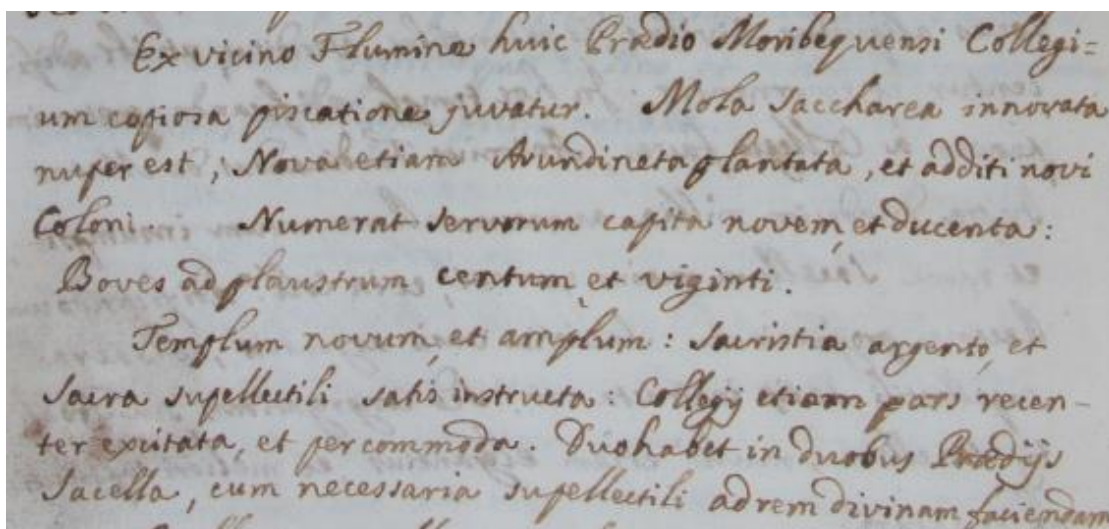 Ex vicino Flumine huic Prædio Moribequensi Collegi=
um copiosa piscatione juvatur. Mola Saccharea innovata
nuper est; Nova etiam Arundineta plantata, et additi novi
Coloni. Numerat servorum capita novem, et ducenta:
Boves ad plaustrum centum, et viginti.
Templum novum, et amplum: Sacristia argento, et
Sacra supellectili satis instructa: Collegij etiam pars recen-
ter excitata, et percommoda. Duo habet in duobus Prædijs
Sacella, cum necessaria supellectili ad rem divinam faciendam